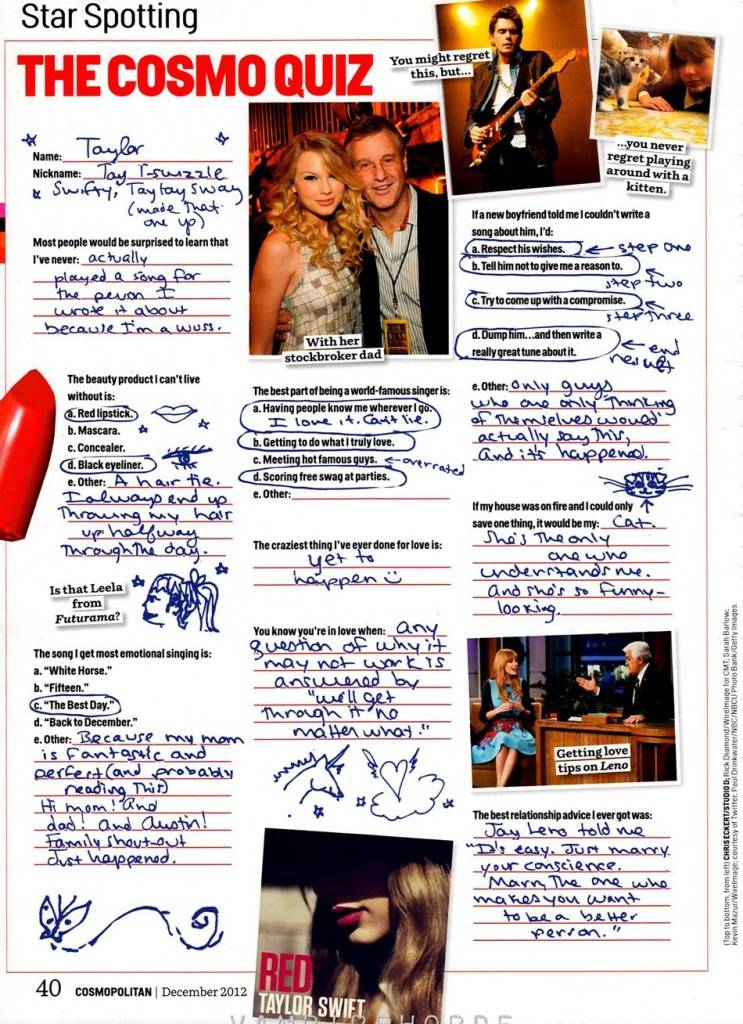 Star Spotting
THE COSMO QUIZ
Name: Taylor
Nickname: Tay T-swizzle
Swifty, Taytay Sway
(made that
one up)
Most people would be surprised to learn that
I've never: actually
played a song for
the person I
wrote it about
because I'm a wuss.
With her
stockbroker dad
You might regret
this, but...
...you never
regret playing
around with a
kitten.
If a new boyfriend told me I couldn't write a
song about him, I'd:
a. Respect his wishes. ← step one
b. Tell him not to give me a reason to.
step two
c. Try to come up with a compromise.
step three
d. Dump him...and then write a
really great tune about it.
← end
result
e. Other: only guys
who are only thinking
of themselves would
actually say this,
And it's happened.
The beauty product I can't live
without is:
a. Red lipstick.
b. Mascara.
c. Concealer.
d. Black eyeliner.
e. Other: A hair tie.
I always end up
Throwing my hair
up halfway
Through the day.
Is that Leela
from
Futurama?
The best part of being a world-famous singer is:
a. Having people know me wherever I go.
I love it. Can't lie.
b. Getting to do what I truly love.
c. Meeting hot famous guys. ← overrated
d. Scoring free swag at parties.
e. Other:
The craziest thing I've ever done for love is:
yet to
happen
If my house was on fire and I could only
save one thing, it would be my: Cat.
She's the only
one who
understands me.
And she's so funny-
looking.
The song I get most emotional singing is:
a. "White Horse."
b. "Fifteen."
c. "The Best Day."
d. "Back to December."
e. Other: Because my mom
is fantastic and
perfect (and probably
reading this)
Hi mom! And
dad! And Austin!
Family shout-out
Just happened.
You know you're in love when: any
question of why it
may not work is
answered by
"we'll get
through it no
matter what."
Getting love
tips on Leno
The best relationship advice I ever got was:
Jay Leno told me
"It's easy. Just marry
your conscience.
Marry the one who
makes you want
to be a better
person."
RED
TAYLOR SWIFT
(Top to bottom, from left) CHRIS ECKERT/STUDIO D; Rick Diamond/WireImage for CMT; Sarah Barlow;
Kevin Mazur/WireImage; courtesy of Twitter; Paul Drinkwater/NBC/NBCU Photo Bank/Getty Images.
40 COSMOPOLITAN | December 2012